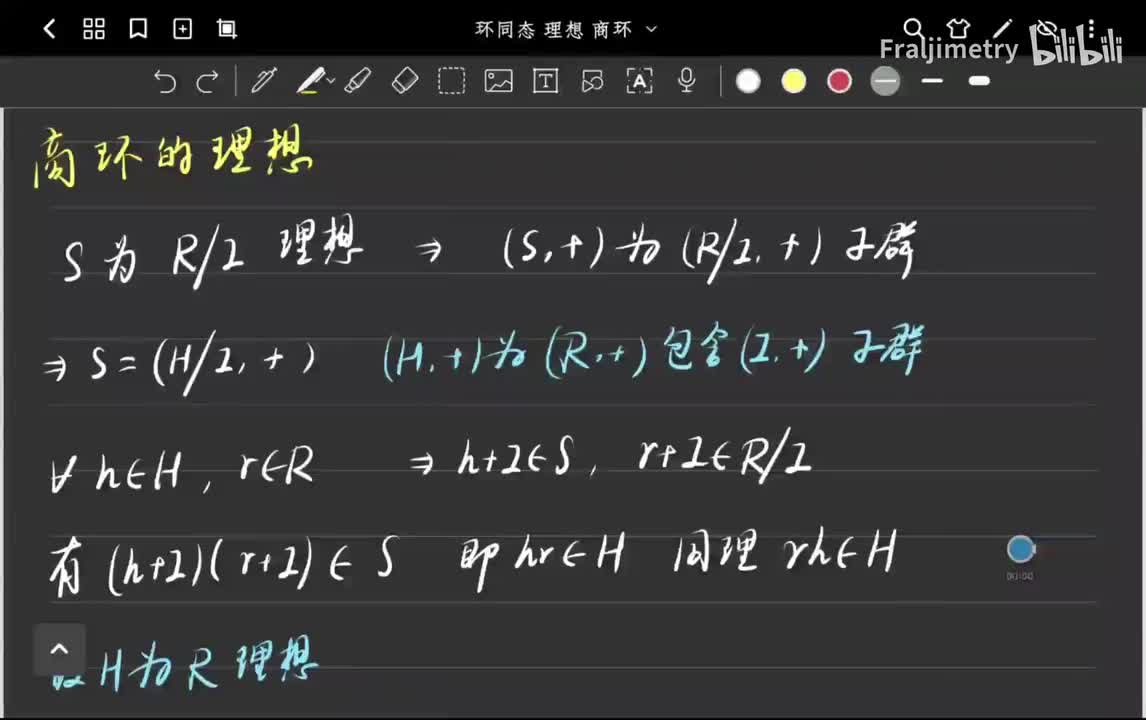 环同态 理想 商环
Fraljimetry bilibili
商环的理想
S为 R/I 理想 ⇒ (S,+)为(R/I,+)子群
⇒ S=(H/I,+) (H,+)为(R,+)包含(I,+)子群
∀ h∈H, r∈R ⇒ h+I∈S, r+I∈R/I
有(h+I)(r+I)∈S 即hr∈H 同理rh∈H
00:00
H为R理想